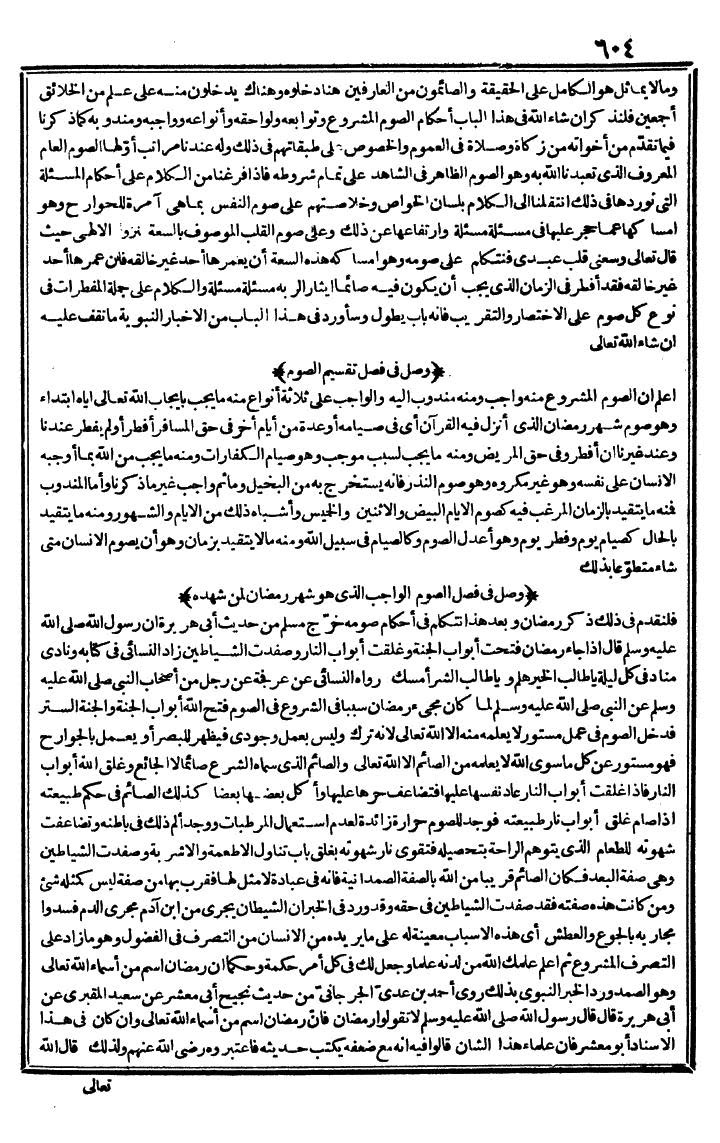 ٦٠٤
ومالا يماثل هو الكامل على الحقيقة والصائمون من العارفين هنا دخلوه وهناك يدخلون منه على علم من الخلائق
أجمعين فلنذكر ان شاء الله فى هذا الباب أحكام الصوم المشروع وتوابعه ولواحقه وأنواعه وواجبه ومندوبه كما ذكرنا
فيما تقدّم من أخواته من زكاة وصلاة فى العموم والخصوص على طبقاتهم فى ذلك وله عندنا مراتب أوّلها الصوم العام
المعروف الذى تعبدنا الله به وهو الصوم الظاهر فى الشاهد على تمام شروطه فاذا فرغنا من الكلام على أحكام المسئلة
التى نوردها فى ذلك انتقلنا الى الكلام بلسان الخواص وخلاصتهم على صوم النفس بما هى آمرة للجوارح وهو
امساكها عما حجر عليها فى مسئلة مسئلة وارتفاعها عن ذلك وعلى صوم القلب الموصوف بالسعة نزول الالهى حيث
قال تعالى وسعنى قلب عبدى فنتكلم على صومه وهو امساكه هذه السعة أن يعمرها أحد غير خالقه فان عمرها أحد
غير خالقه فقد أفطر فى الزمان الذى يجب أن يكون فيه صائما ايثارا لربه مسئلة مسئلة والكلام على جملة المفطرات فى
نوع كل صوم على الاختصار والتقريب فانه باب يطول وسأورد فى هذا الباب من الاخبار النبوية ما تقف عليه
ان شاء الله تعالى
﴿وصل فى فصل تقسيم الصوم﴾
اعلم ان الصوم المشروع منه واجب ومنه مندوب اليه والواجب على ثلاثة أنواع منه ما يجب بايجاب الله تعالى اياه ابتداء
وهو صوم شهر رمضان الذى أنزل فيه القرآن أى فى صيامه أو عدة من أيام أخر فى حق المسافر أفطر أو لم يفطر عندنا
وعند غيرنا ان أفطر وفى حق المريض ومنه ما يجب لسبب موجب وهو صيام الكفارات ومنه ما يجب من الله بما أوجبه
الانسان على نفسه وهو غير مكروه وهو صوم النذر فانه يستخرج به من البخيل وما ثم واجب غير ما ذكرنا وأما المندوب
فمنه ما يتقيد بالزمان المرغب فيه كصوم الايام البيض والاثنين والخيس وأشباه ذلك من الايام والشهور ومنه ما يتقيد
بالحال كصيام يوم وفطر يوم وهو أعدل الصوم وكالصيام فى سبيل الله ومنه مالا يتقيد بزمان وهو أن يصوم الانسان متى
شاء متطوّعا بذلك
﴿وصل فى فصل الصوم الواجب الذى هو شهر رمضان لمن شهده﴾
فلنقدم فى ذلك ذكر رمضان وبعد هذا نتكلم فى أحكام صومه خرّج مسلم من حديث أبى هريرة ان رسول الله صلى الله
عليه وسلم قال اذا جاء رمضان فتحت أبواب الجنة وغلقت أبواب النار وصفدت الشياطين زاد النسائى فى كتابه ونادى
مناد فى كل ليلة يا طالب الخير هلم ويا طالب الشر أمسك رواه النسائى عن عرفجة عن رجل من أصحاب النبى صلى الله عليه
وسلم عن النبى صلى الله عليه وسلم لما كان مجىء رمضان سببا فى الشروع فى الصوم فتح الله أبواب الجنة والجنة الستر
فدخل الصوم فى عمل مستور لا يعلمه منه الا الله تعالى لانه ترك وليس بعمل وجودى فيظهر للبصر أو يعمل بالجوارح
فهو مستور عن كل ما سوى الله لا يعلمه من الصائم الا الله تعالى والصائم الذى سماه الشرع صائما لا الجائع وغلق الله أبواب
النار فاذا غلقت أبواب النار عاد نفسها عليها فتضاعف حرها عليها وأكل بعضها بعضا كذلك الصائم فى حكم طبيعته
اذا صام غلق أبواب نار طبيعته فوجد للصوم حرارة زائدة لعدم استعمال المرطبات ووجد ألم ذلك فى باطنه وتضاعفت
شهوته للطعام الذى يتوهم الراحة بتحصيله فتقوى نار شهوته بغلق باب تناول الاطعمة والاشربة وصفدت الشياطين
وهى صفة البعد فكان الصائم قريبا من الله بالصفة الصمدانية فانه فى عبادة لا مثل لها فقرب بها من صفة ليس كمثله شئ
ومن كانت هذه صفته فقد صفدت الشياطين فى حقه وقد ورد فى الخبر ان الشيطان يجرى من ابن آدم مجرى الدم فسدوا
مجاريه بالجوع والعطش أى هذه الاسباب معينة له على ما يريده من الانسان من التصرف فى الفضول وهو ما زاد على
التصرف المشروع ثم اعلم علمك الله من لدنه علما وجعل لك فى كل أمر حكمة وحكما ان رمضان اسم من أسماء الله تعالى
وهو الصمد ورد الخبر النبوى بذلك روى أحمد بن عدىّ الجرجانىّ من حديث نجيح أبى معشر عن سعيد المقبرى عن
أبى هريرة قال قال رسول الله صلى الله عليه وسلم لا تقولوا رمضان فانّ رمضان اسم من أسماء الله تعالى وان كان فى هذا
الاسناد أبو معشر فان علماء هذا الشان قالوا فيه انه مع ضعفه يكتب حديثه فاعتبروه رضى الله عنهم ولذلك قال الله
تعالى